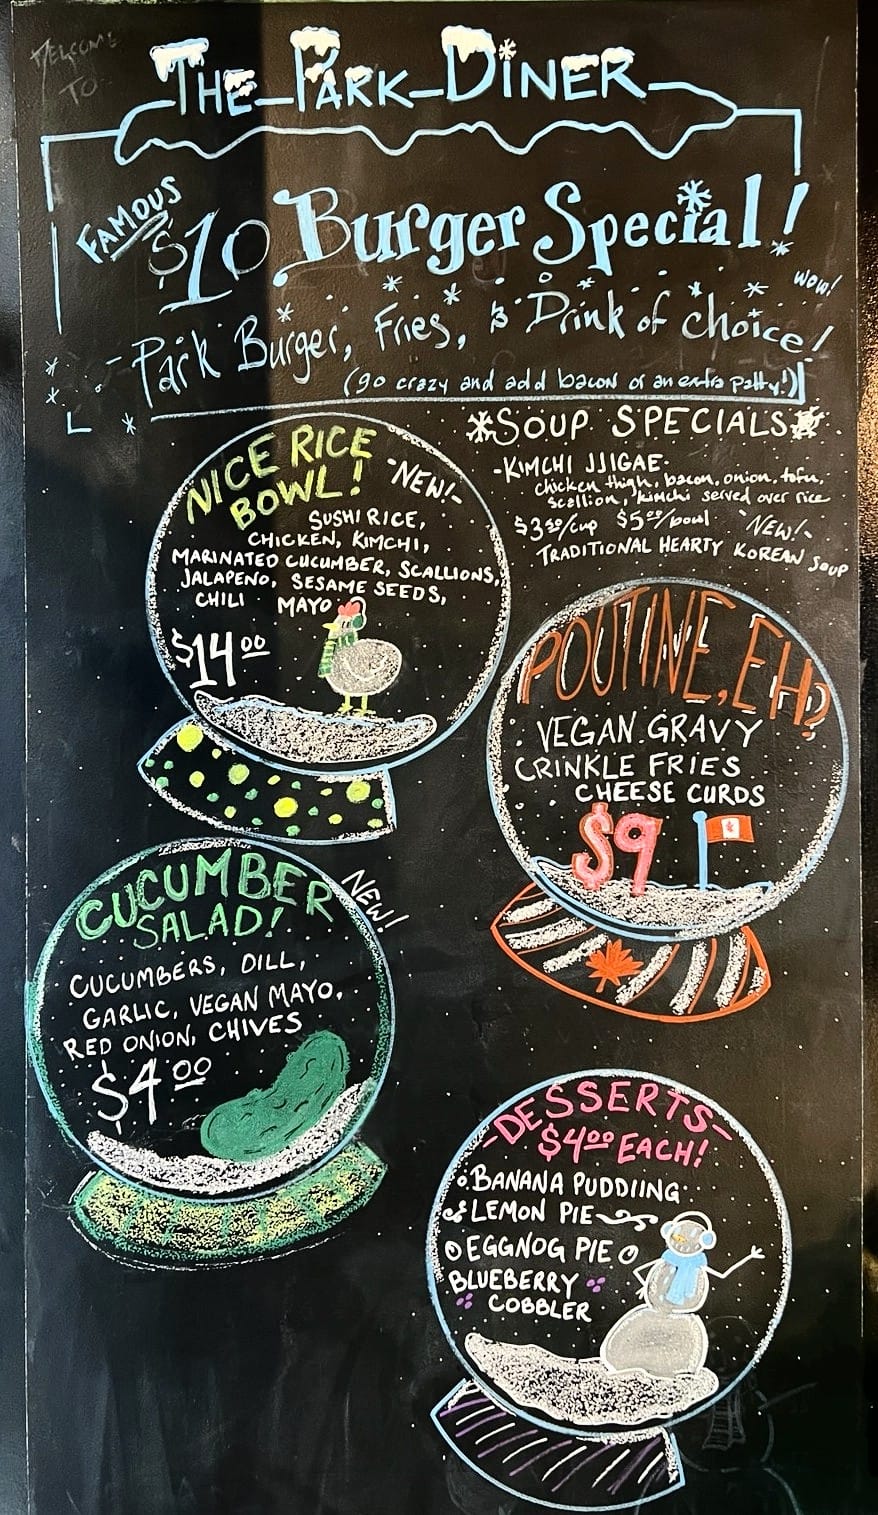 WELCOME
TO
THE PARK DINER
FAMOUS
$10 Burger Special!
wow!
-Park Burger, Fries, & Drink of choice!
(go crazy and add bacon or an extra patty!)
SOUP SPECIALS
-KIMCHI JJIGAE-
chicken thigh, bacon, onion, tofu,
scallion, kimchi served over rice
$3.50/cup $5.00/bowl -NEW!-
TRADITIONAL HEARTY KOREAN SOUP
NICE RICE
BOWL!
-NEW!-
SUSHI RICE,
CHICKEN, KIMCHI,
MARINATED CUCUMBER, SCALLIONS,
JALAPENO, SESAME SEEDS,
CHILI MAYO
$14.00
POUTINE, EH?
VEGAN GRAVY
CRINKLE FRIES
CHEESE CURDS
$9
CUCUMBER
SALAD!
NEW!
CUCUMBERS, DILL,
GARLIC, VEGAN MAYO,
RED ONION, CHIVES
$4.00
-DESSERTS-
$4.00 EACH!
BANANA PUDDIING
LEMON PIE
EGGNOG PIE
BLUEBERRY
COBBLER